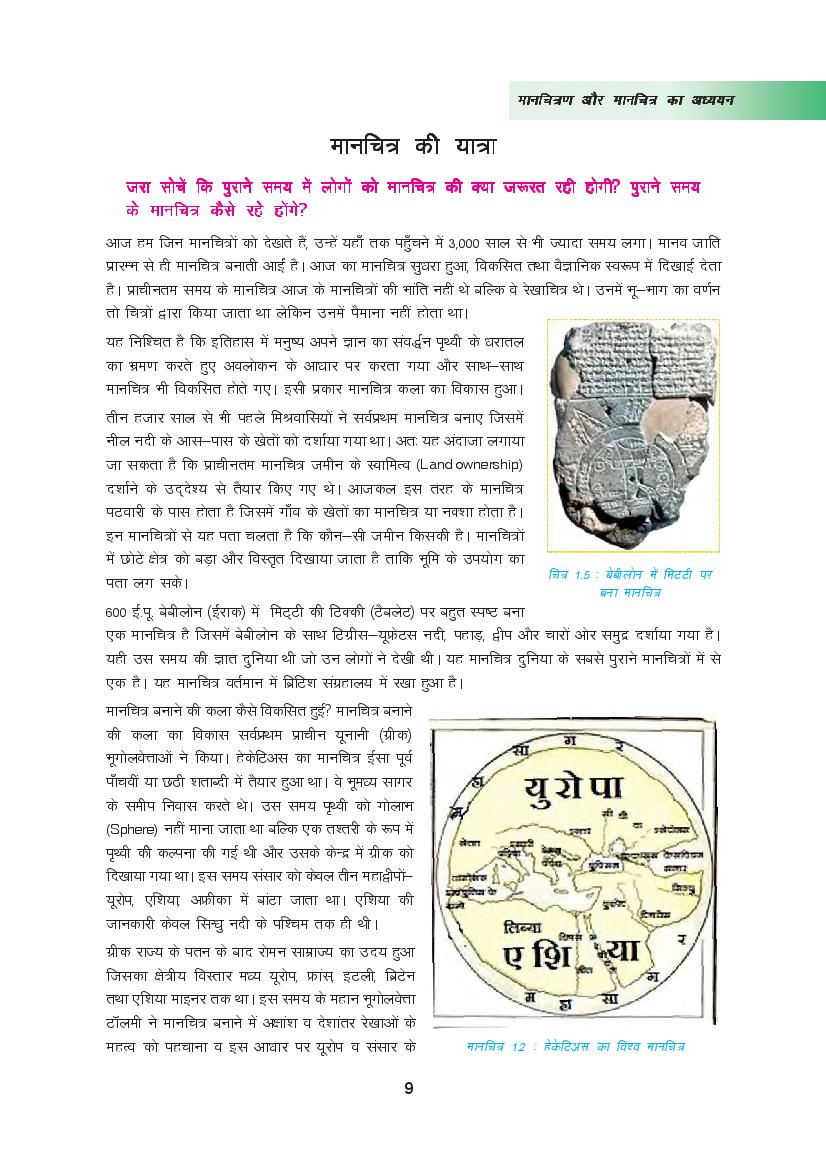 मानचित्रण और मानचित्र का अध्ययन
मानचित्र की यात्रा
जरा सोचें कि पुराने समय में लोगों को मानचित्र की क्या जरूरत रही होगी? पुराने समय
के मानचित्र कैसे रहे होंगे?
आज हम जिन मानचित्रों को देखते हैं, उन्हें यहाँ तक पहुँचने में 3,000 साल से भी ज्यादा समय लगा। मानव जाति
प्रारम्भ से ही मानचित्र बनाती आई है। आज का मानचित्र सुधरा हुआ, विकसित तथा वैज्ञानिक स्वरूप में दिखाई देता
है। प्राचीनतम समय के मानचित्र आज के मानचित्रों की भांति नहीं थे बल्कि वे रेखाचित्र थे। उनमें भू–भाग का वर्णन
तो चित्रों द्वारा किया जाता था लेकिन उनमें पैमाना नहीं होता था।
यह निश्चित है कि इतिहास में मनुष्य अपने ज्ञान का संवर्द्धन पृथ्वी के धरातल
का भ्रमण करते हुए अवलोकन के आधार पर करता गया और साथ–साथ
मानचित्र भी विकसित होते गए। इसी प्रकार मानचित्र कला का विकास हुआ।
तीन हजार साल से भी पहले मिश्रवासियों ने सर्वप्रथम मानचित्र बनाए जिसमें
नील नदी के आस–पास के खेतों को दर्शाया गया था। अतः यह अंदाजा लगाया
जा सकता है कि प्राचीनतम मानचित्र जमीन के स्वामित्व (Land ownership)
दर्शाने के उद्देश्य से तैयार किए गए थे। आजकल इस तरह के मानचित्र
पटवारी के पास होता है जिसमें गाँव के खेतों का मानचित्र या नक्शा होता है।
इन मानचित्रों से यह पता चलता है कि कौन–सी जमीन किसकी है। मानचित्रों
में छोटे क्षेत्र को बड़ा और विस्तृत दिखाया जाता है ताकि भूमि के उपयोग का
पता लग सके।
चित्र 1.5 : बेबीलोन में मिटटी पर
बना मानचित्र
600 ई.पू. बेबीलोन (ईराक) में मिट्टी की टिक्की (टैबलेट) पर बहुत स्पष्ट बना
एक मानचित्र है जिसमें बेबीलोन के साथ टिग्रीस–यूफ्रेटस नदी, पहाड़, द्वीप और चारों ओर समुद्र दर्शाया गया है।
यही उस समय की ज्ञात दुनिया थी जो उन लोगों ने देखी थी। यह मानचित्र दुनिया के सबसे पुराने मानचित्रों में से
एक है। यह मानचित्र वर्तमान में ब्रिटिश संग्रहालय में रखा हुआ है।
मानचित्र बनाने की कला कैसे विकसित हुई? मानचित्र बनाने
की कला का विकास सर्वप्रथम प्राचीन यूनानी (ग्रीक)
भूगोलवेत्ताओं ने किया। हेकेटिअस का मानचित्र ईसा पूर्व
पाँचवीं या छठी शताब्दी में तैयार हुआ था। वे भूमध्य सागर
के समीप निवास करते थे। उस समय पृथ्वी को गोलाभ
(Sphere) नहीं माना जाता था बल्कि एक तश्तरी के रूप में
पृथ्वी की कल्पना की गई थी और उसके केन्द्र में ग्रीक को
दिखाया गया था। इस समय संसार को केवल तीन महाद्वीपों–
यूरोप, एशिया, अफ्रीका में बांटा जाता था। एशिया की
जानकारी केवल सिन्धु नदी के पश्चिम तक ही थी।
ग्रीक राज्य के पतन के बाद रोमन साम्राज्य का उदय हुआ
जिसका क्षेत्रीय विस्तार मध्य यूरोप, फ्रांस, इटली, ब्रिटेन
तथा एशिया माइनर तक था। इस समय के महान भूगोलवेत्ता
टॉलमी ने मानचित्र बनाने में अक्षांश व देशांतर रेखाओं के
महत्व को पहचाना व इस आधार पर यूरोप व संसार के
महा सागर
युरोपा
लिब्या
एशिया
महासागर
मानचित्र 1.2 : हेकेटिअस का विश्व मानचित्र
9